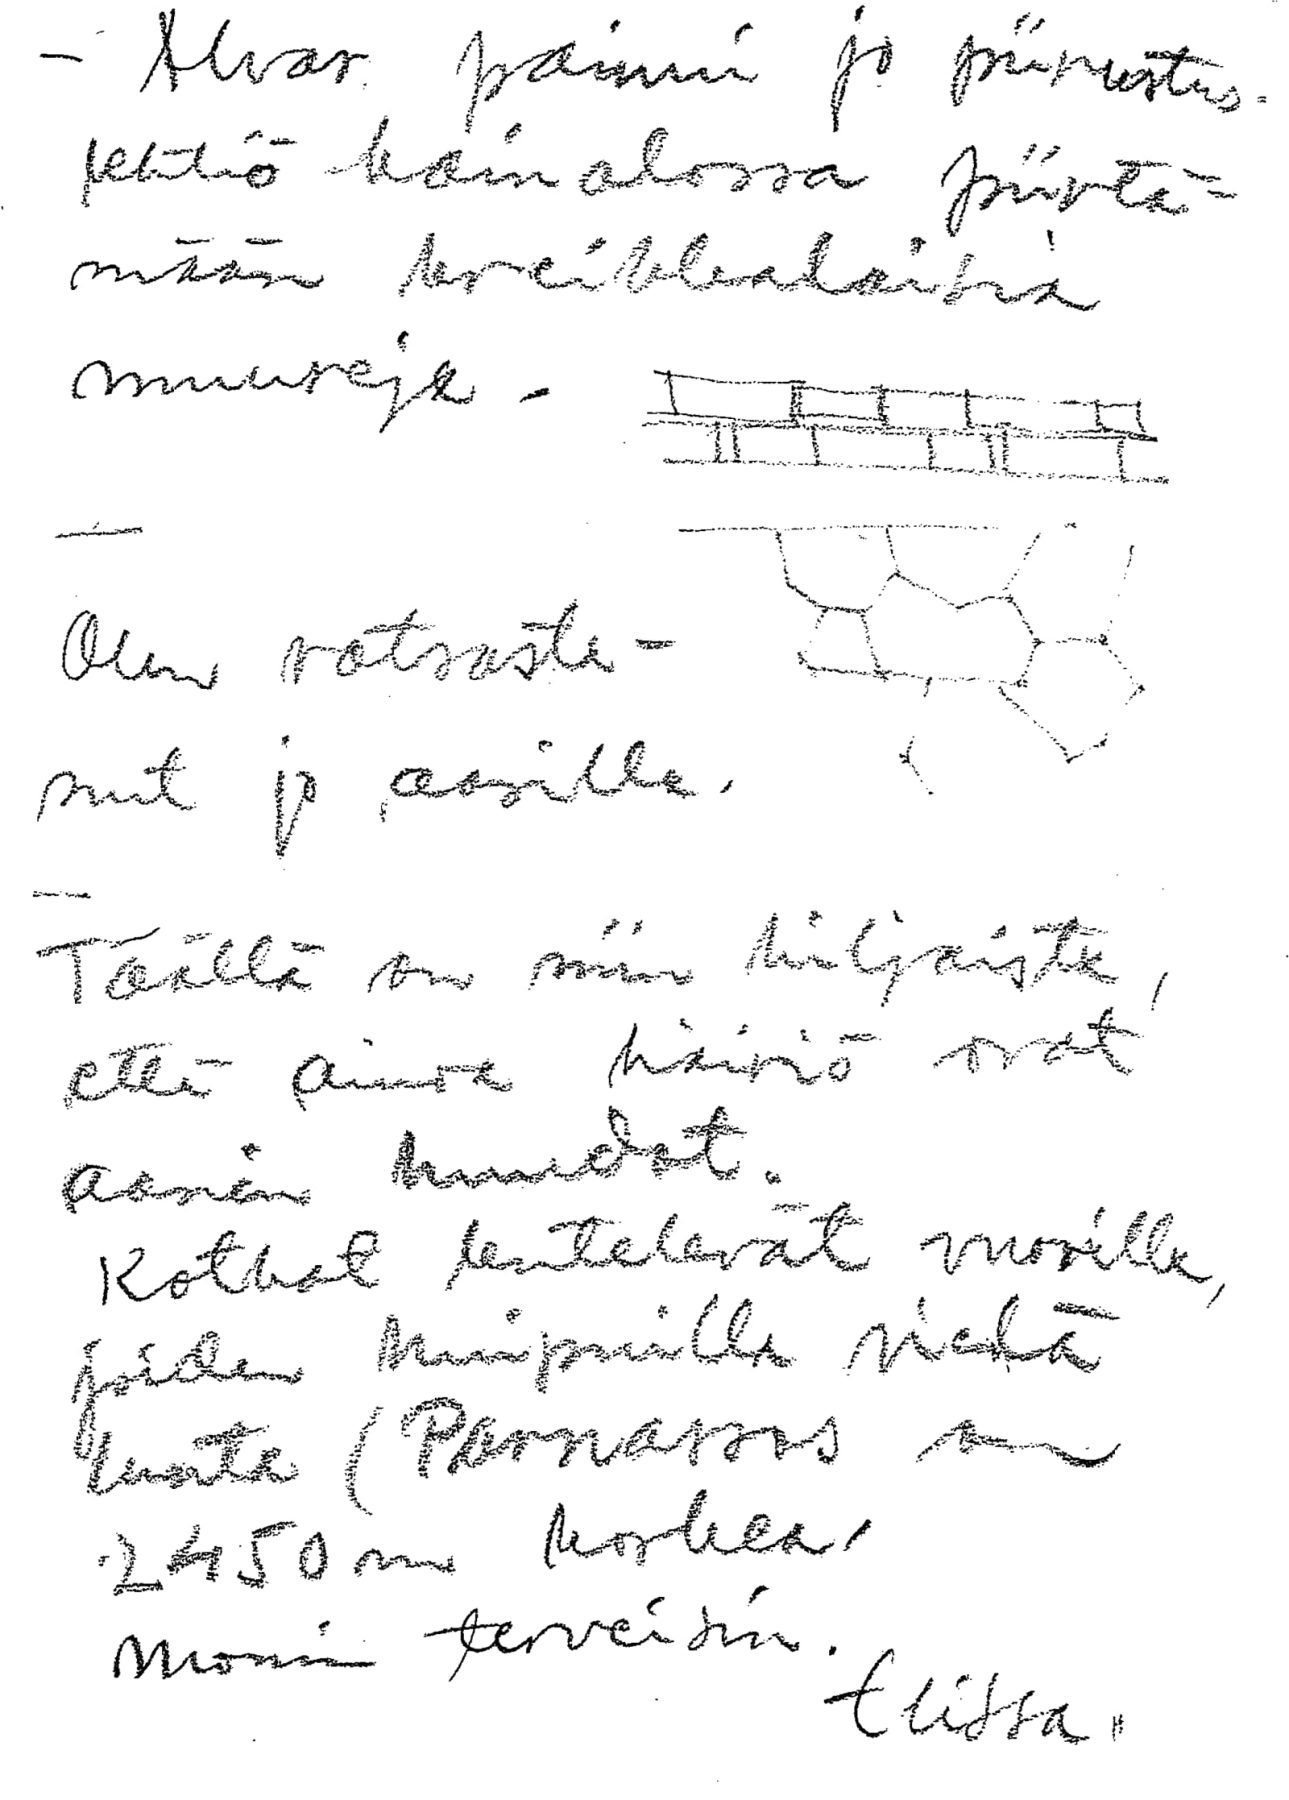 - Alvar painui jo piirustus-
lehtiö kainalossa piirtä-
mään kreikkalaisia
muureja -
Olen ratsasta-
nut jo aasilla.
Täällä on niin hiljaista,
että ainoa häiriö ovat
aasien huudot.
Kotkat lentelevät vuorilla,
joiden huipuilla vielä
lunta (Parnassos on
2450 m korkea.
Monin terveisin.
Elissa.